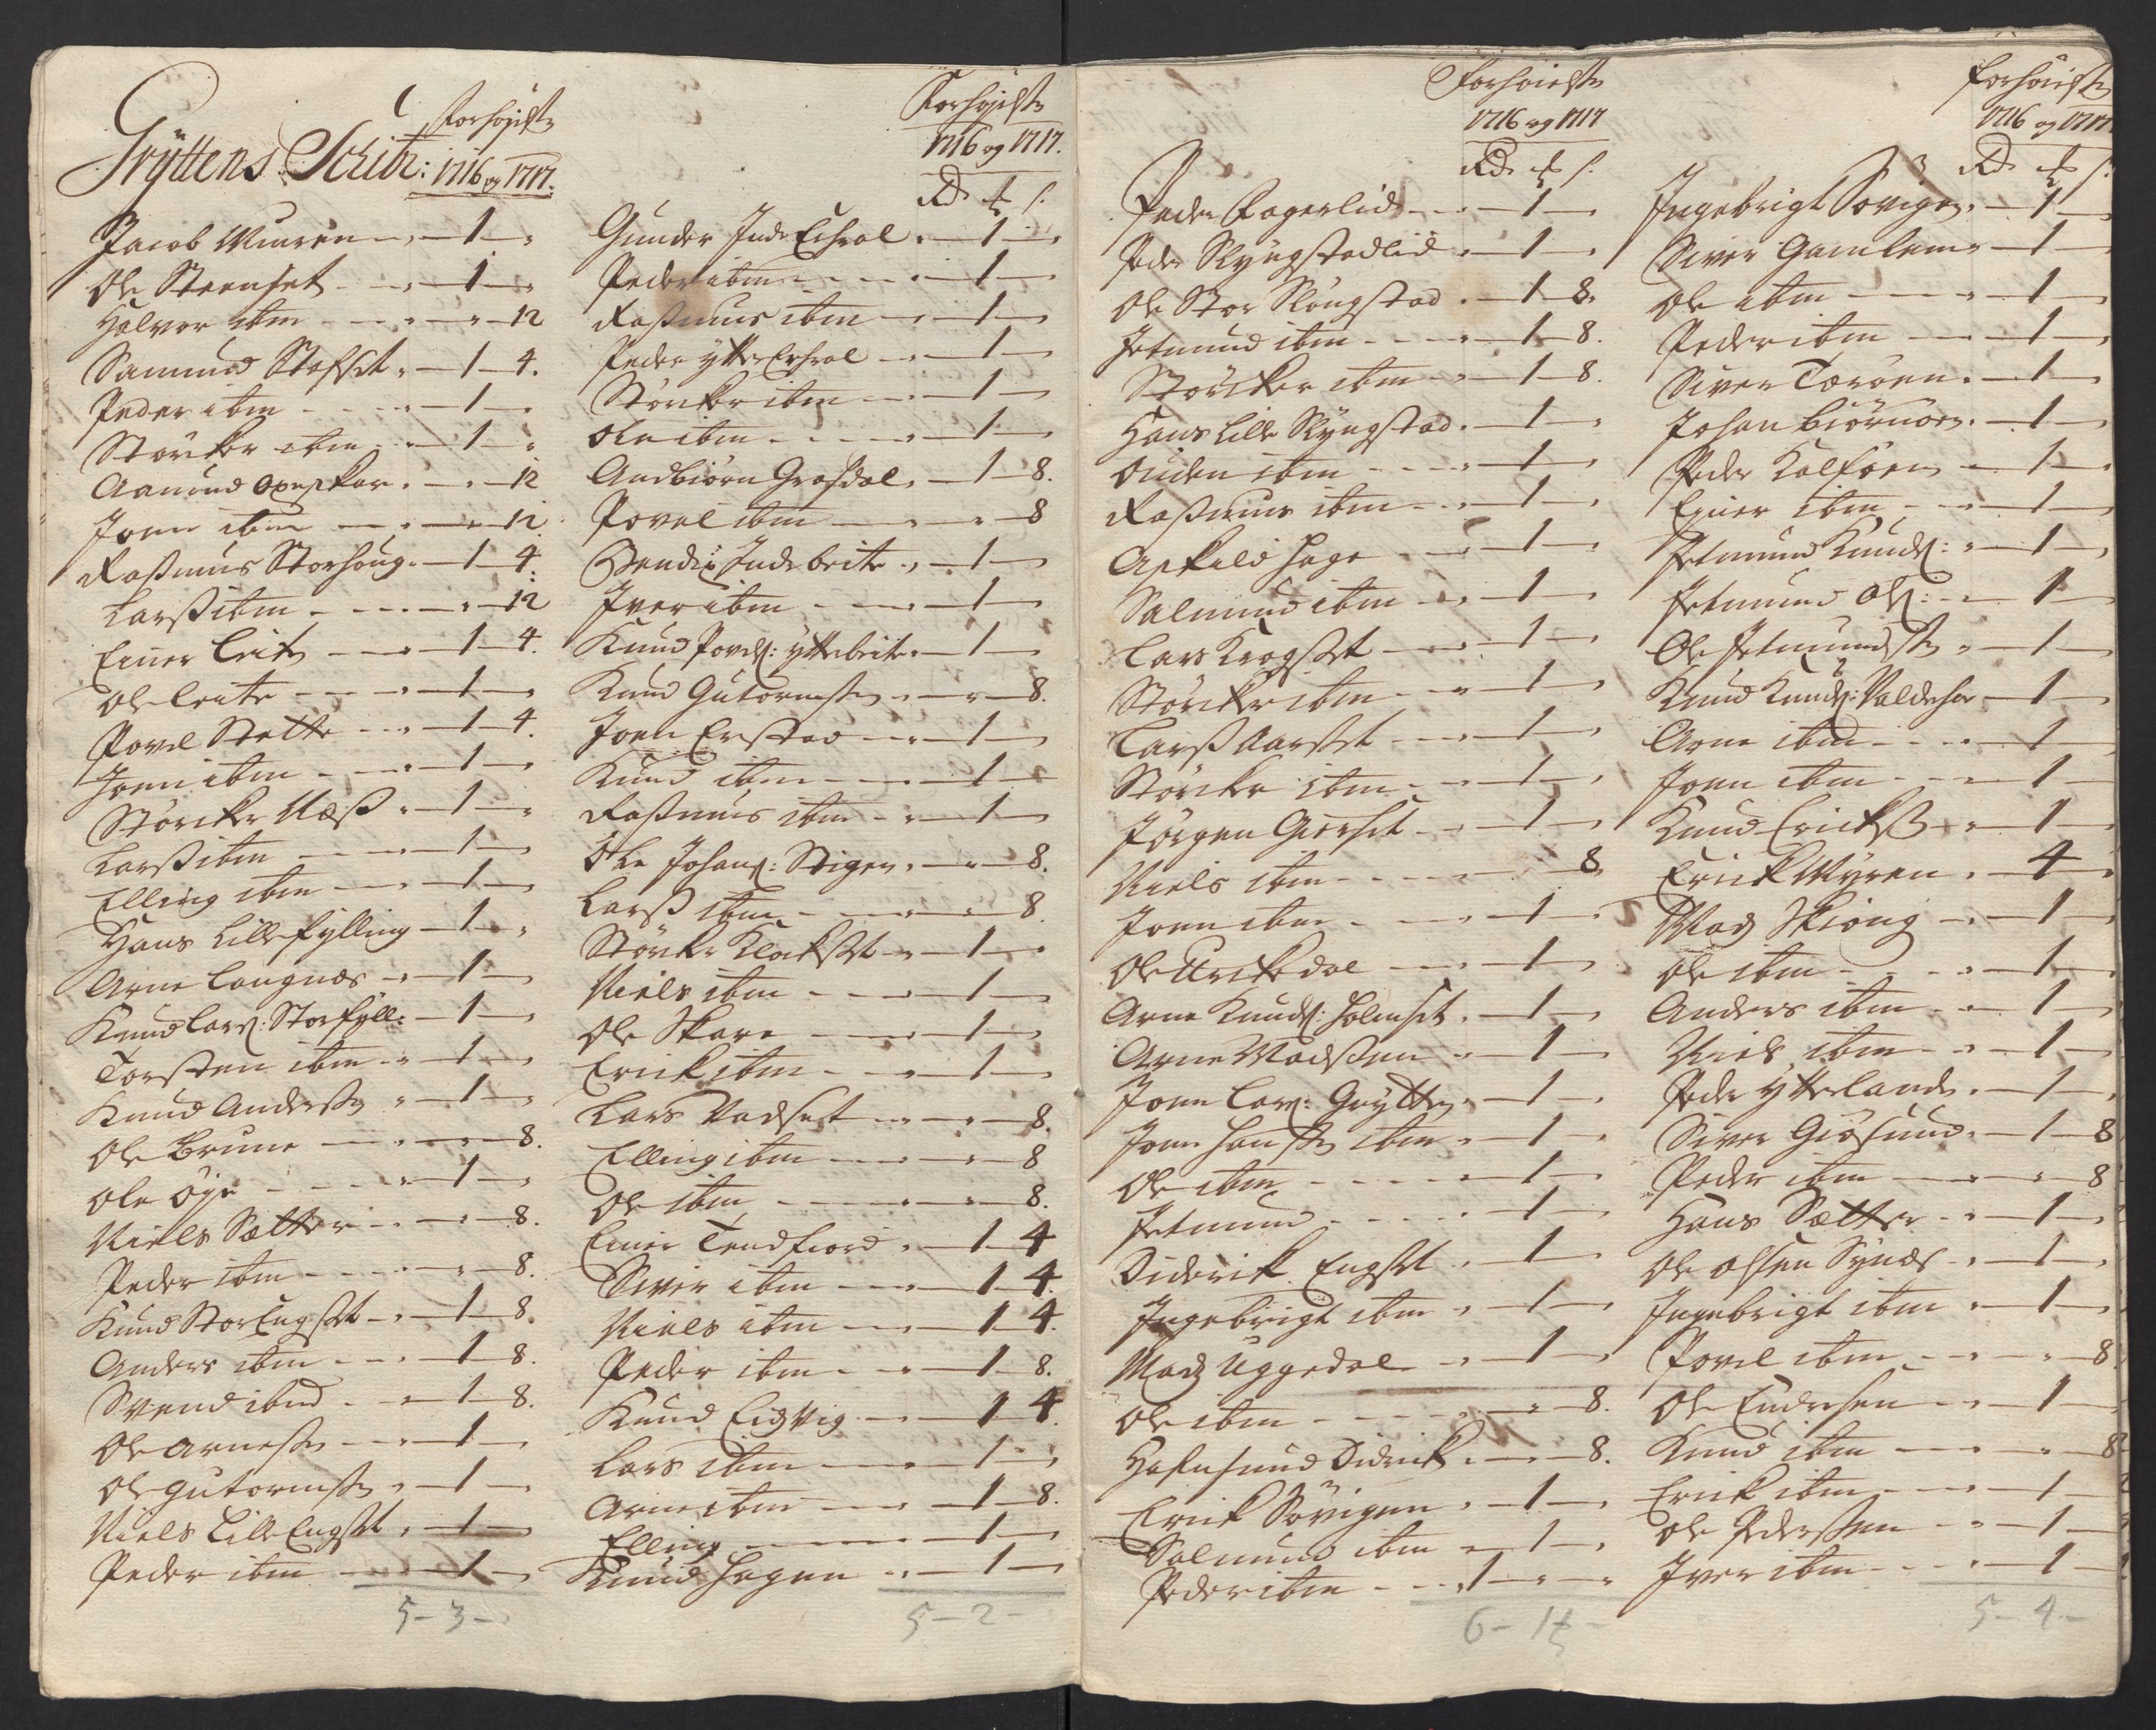 Gryttens Schibr:
Forhøjelse
1716 og 1717.
Jacob Muuren — 1 —
Ole Steenset — 1 —
Halvor ibm — 12
Samund Stafset — 1 4.
Peder ibm — 1 —
Störker ibm — 1 —
Aamund — 12
Joen ibm — 12
Rasmus Storhoug — 1 4.
Larss ibm — 12
Einer Leite — 1 4.
Ole Leite — 1 —
Povel Stette — 1 4.
Joen ibm — 1 —
Störcker Næss — 1 —
Larss ibm — 1 —
Elling ibm — 1 —
Hans Lillefylling — 1 —
Arne Langnæs — 1 —
Knud Lars: Storfyll: — 1 —
Torsten ibm — 1 —
Knud Anderss: — 1 —
Ole Brune — 8.
Ole Öye — 1 —
Niels Sætter — 8.
Peder ibm — 8.
Knud StorEngset — 1 8.
Anders ibm — 1 8.
Svend ibmd — 1 8.
Ole Arness: — 1 —
Ole Gutormss: — 1 —
Niels Lille Engset — 1 —
Peder ibm — 1 —
5 - 3 -
Forhøjelse
1716 og 1717.
Rd ort s.
Gunder Indr — 1 —
Peder ibm — 1 —
Rasmus ibm — 1 —
Peder ytter — 1 —
Störker ibm — 1 —
Ole ibm — 1 —
Andbiörn Grafdal — 1 8.
Povel ibm — 8
Bendix Inderbeite — 1 —
Iver ibm — 1 —
Knud Povels: ytterbeite — 1 —
Knud Gutormss: — 8.
Joen Erstad — 1 —
Knud ibm — 1 —
Rasmus ibm — 1 —
Ole Johans: Stigen — 8.
Larss ibm — 8.
Störker Klokset — 1 —
Niels ibm — 1 —
Ole Skare — 1 —
Erick ibm — 1 —
Lars Vadset — 8.
Elling ibm — 8
Ole ibm — 8.
Einer Tendfiord — 1 4
Siver ibm — 1 4.
Niels ibm — 1 4.
Peder ibm — 1 8.
Knud Eidvig — 1 4.
Lars ibm — 1 —
Arne ibm — 1 8.
Elling — 1 —
Knud Hagen — 1 —
5 - 2 -
Forhøielse
1716 og 1717
Rd ort s.
Peder Fagerlid — 1 —
Peder Slyngstadlid — 1 —
Ole Stor Slöngstad — 1 8.
Jetmund ibm — 1 8.
Störcker ibm — 1 8.
Hans Lille Slyngstad — 1 —
Ouden ibm — 1 —
Rasmus ibm — 1 —
Askild Hage — 1 —
Salmund ibm — 1 —
Lars Krogset — 1 —
Störcker ibm — 1 —
Larss Aarset — 1 —
Störcker ibm — 1 —
Jörgen Gierset — 1 —
Niels ibm — 8
Joen ibm — 1 —
Ole Urkedal — 1 —
Arne Knuds: Holmset — 1 —
Arne Madssen — 1 —
Joen Lars: Grytten — 1 —
Joen Hanss: ibm — 1 —
Ole ibm — 1 —
Jetmund — 1 —
Diderick Engset — 1 —
Ingebrigt ibm — 1 —
Mads Uggedal — 1 —
Ole ibm — 8.
Hafnsund Didrick — 8.
Erick Sövigen — 1 —
Salmund ibm — 1 —
Peder ibm — 1 —
6 - 1 ort -
3
Forhøielse
1716 og 1717
Rd ort s.
Ingebrigt Sövigen — 1 —
Siver Gamlem — 1 —
Ole ibm — 1 —
Peder ibm — 1 —
Siver Tæröen — 1 —
Johan Biörnöen — 1 —
Peder Kalföen — 1 —
Einer ibm — 1 —
Jetmund Knuds: — 1 —
Jetmund Ols: — 1 —
Ole Jetmundss: — 1 —
Knud Knuds: Valdehou — 1 —
Arne ibm — 1 —
Joen ibm — 1 —
Knud Erickss — 1 —
Erick Myren — 4 —
Mads Skiong — 1 —
Ole ibm — 1 —
Anders ibm — 1 —
Niels ibm — 1 —
Peder ytterlande — 1 —
Siver Giösund — 1 8
Peder ibm — 8
Hans Sætter — 1 —
Ole Olsen Synes — 1 —
Ingebrigt ibm — 1 —
Povel ibm — 8.
Ole Endresen — 1 —
Knud ibm — 8
Erick ibm — 1 —
Ole Pederssen — 1 —
Iver ibm — 1 —
5 - 4 -